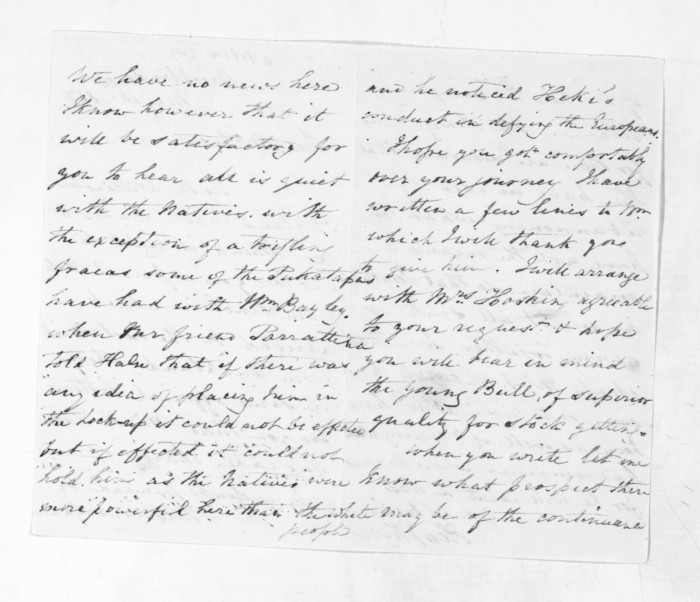 We have no news here
I know however that it
will be satisfactory for
you to hear all is quiet
with the Natives. with
the exception of a trifling
fracas some of the Puketapu's
have had with Wm Bayley.
when Our friend Parrattena
told Halse that if there was
any idea of placing him in
the Lock-up it could not be effected
but if effected it could not
hold him as the Natives were
more powerful here than the white
people
and he noticed Heki's
conduct in defying the Europeans.
I hope you got comfortably
over your journey I have
written a few lines to Wm
which I will thank you
to give him. I will arrange
with Mrs Hoskin agreeable
to your request & hope
you will bear in mind
the young Bull, of superior
quality for stock getting.
When you write let me
know what prospect there
may be of the continuance